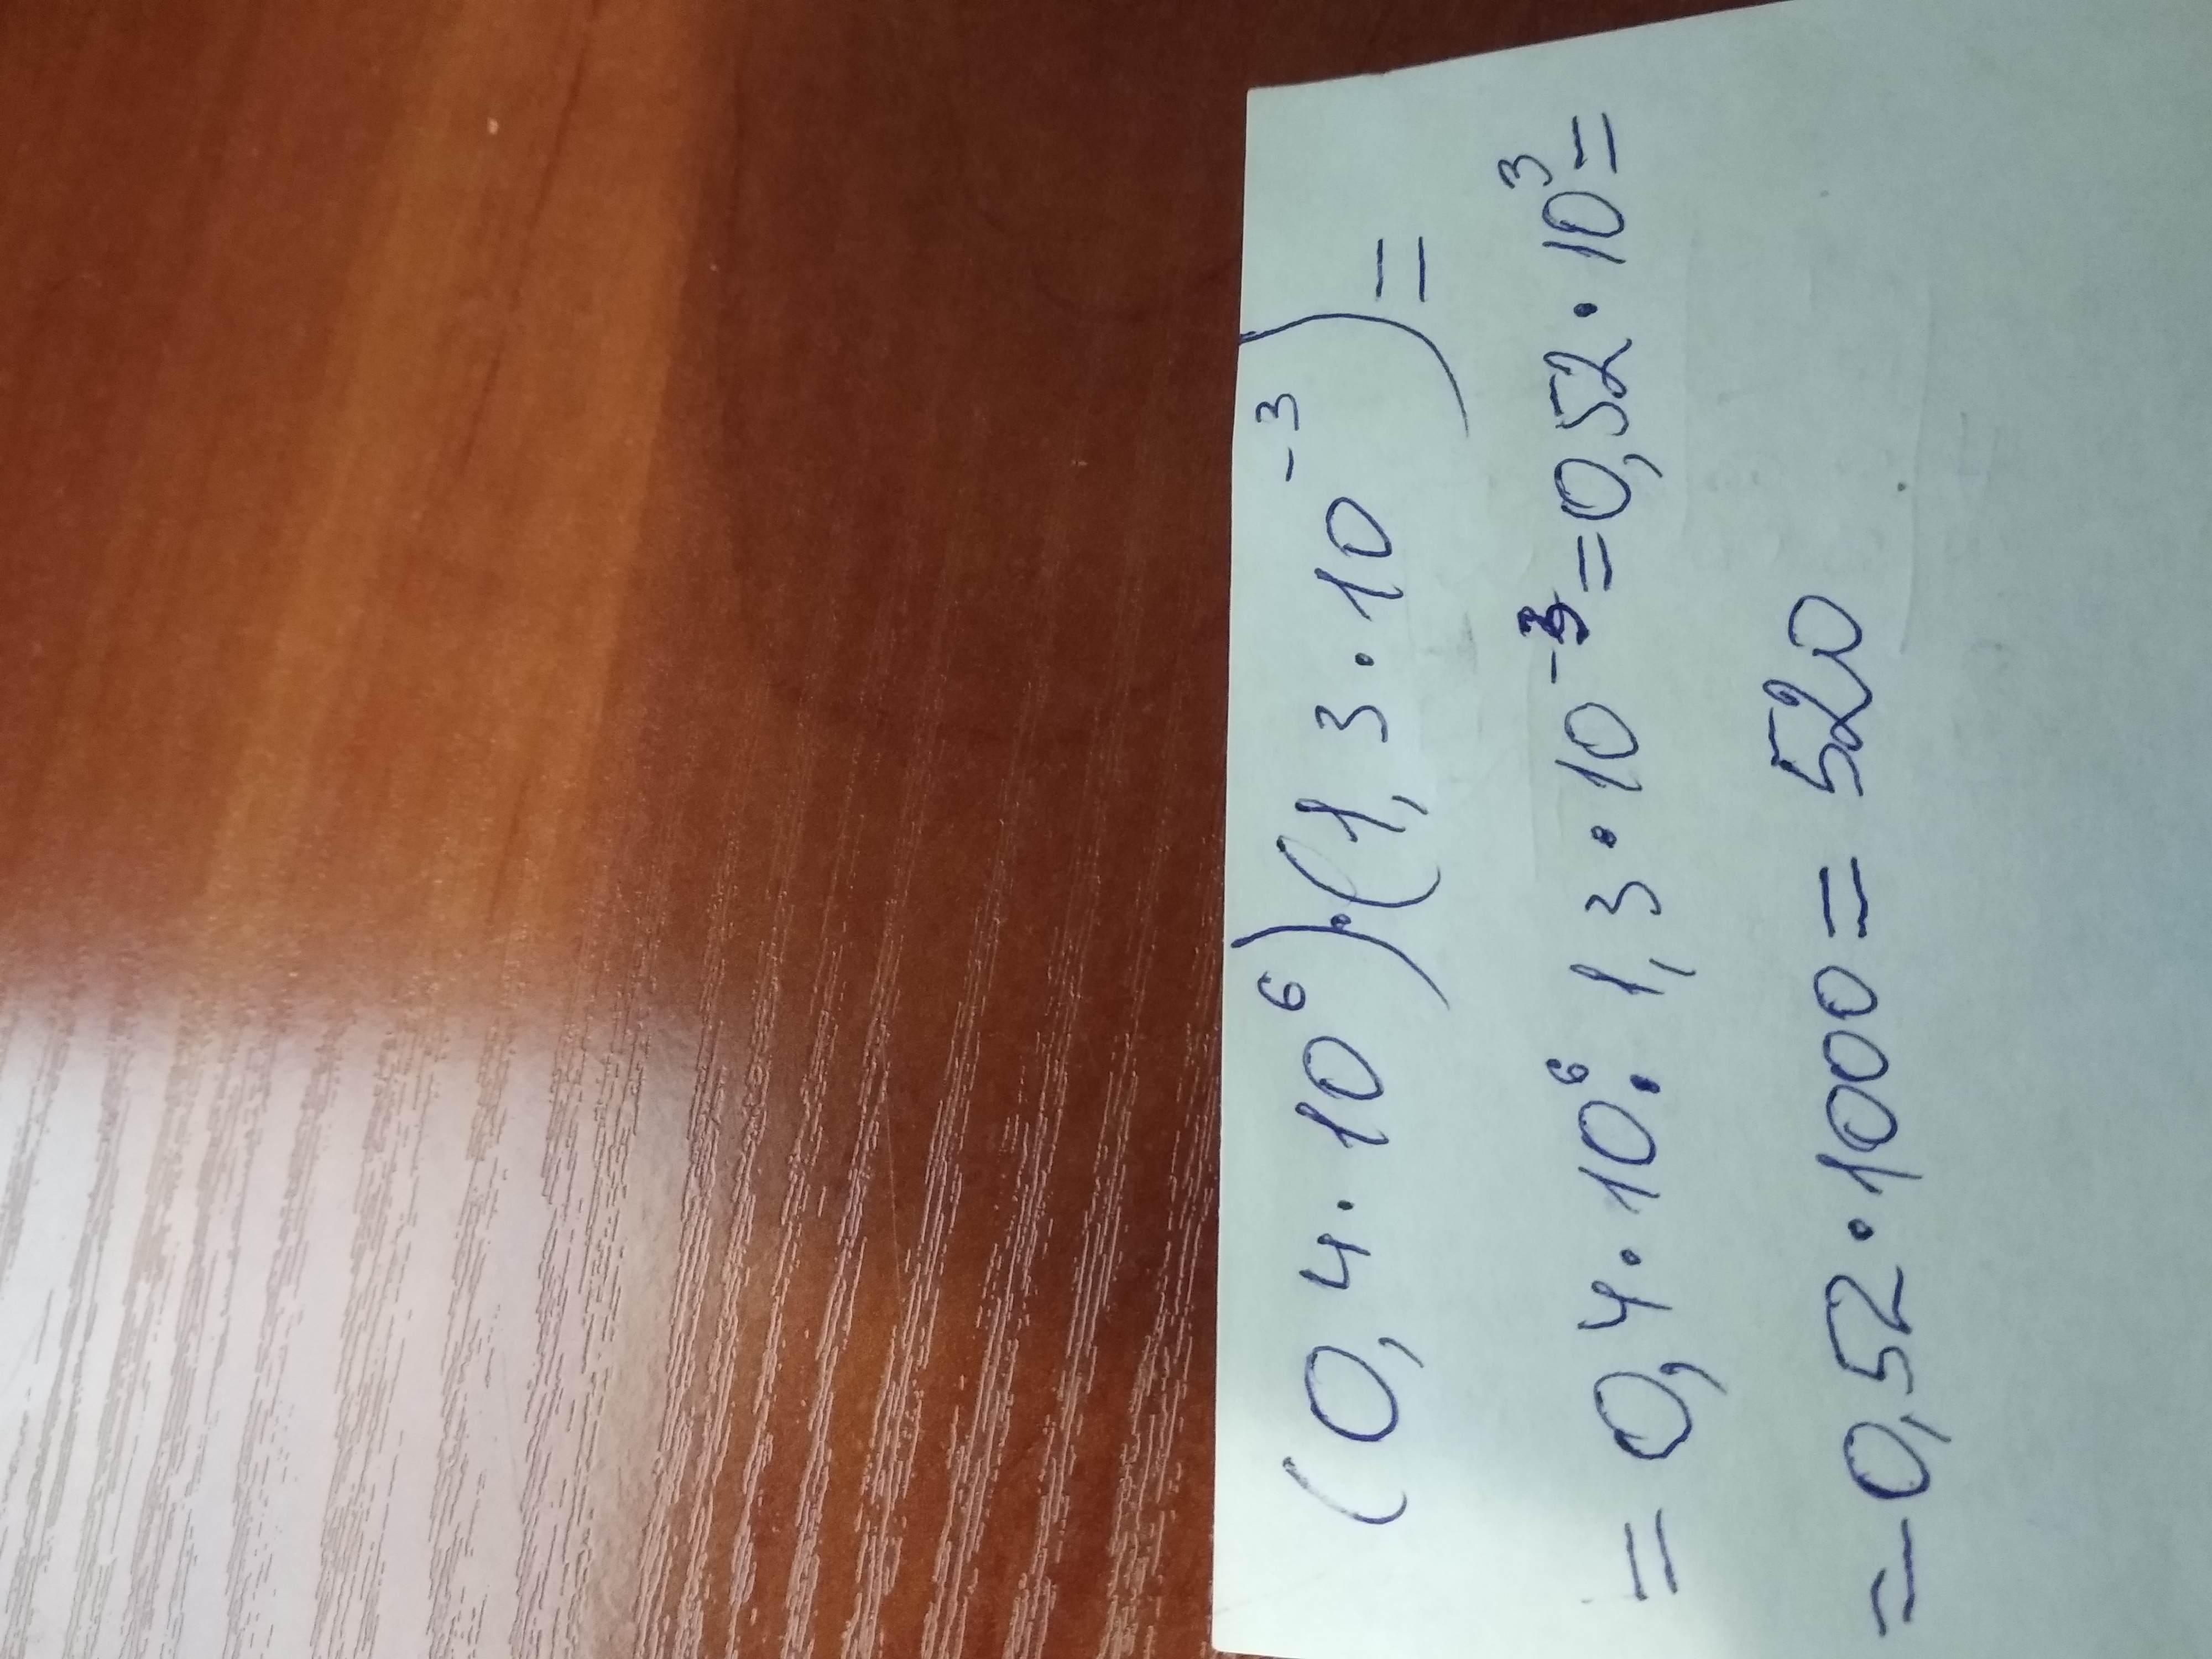 (0,4·10⁶)·(1,3·10⁻³)=
=0,4·10⁶·1,3·10⁻³=0,52·10³=
=0,52·1000=520